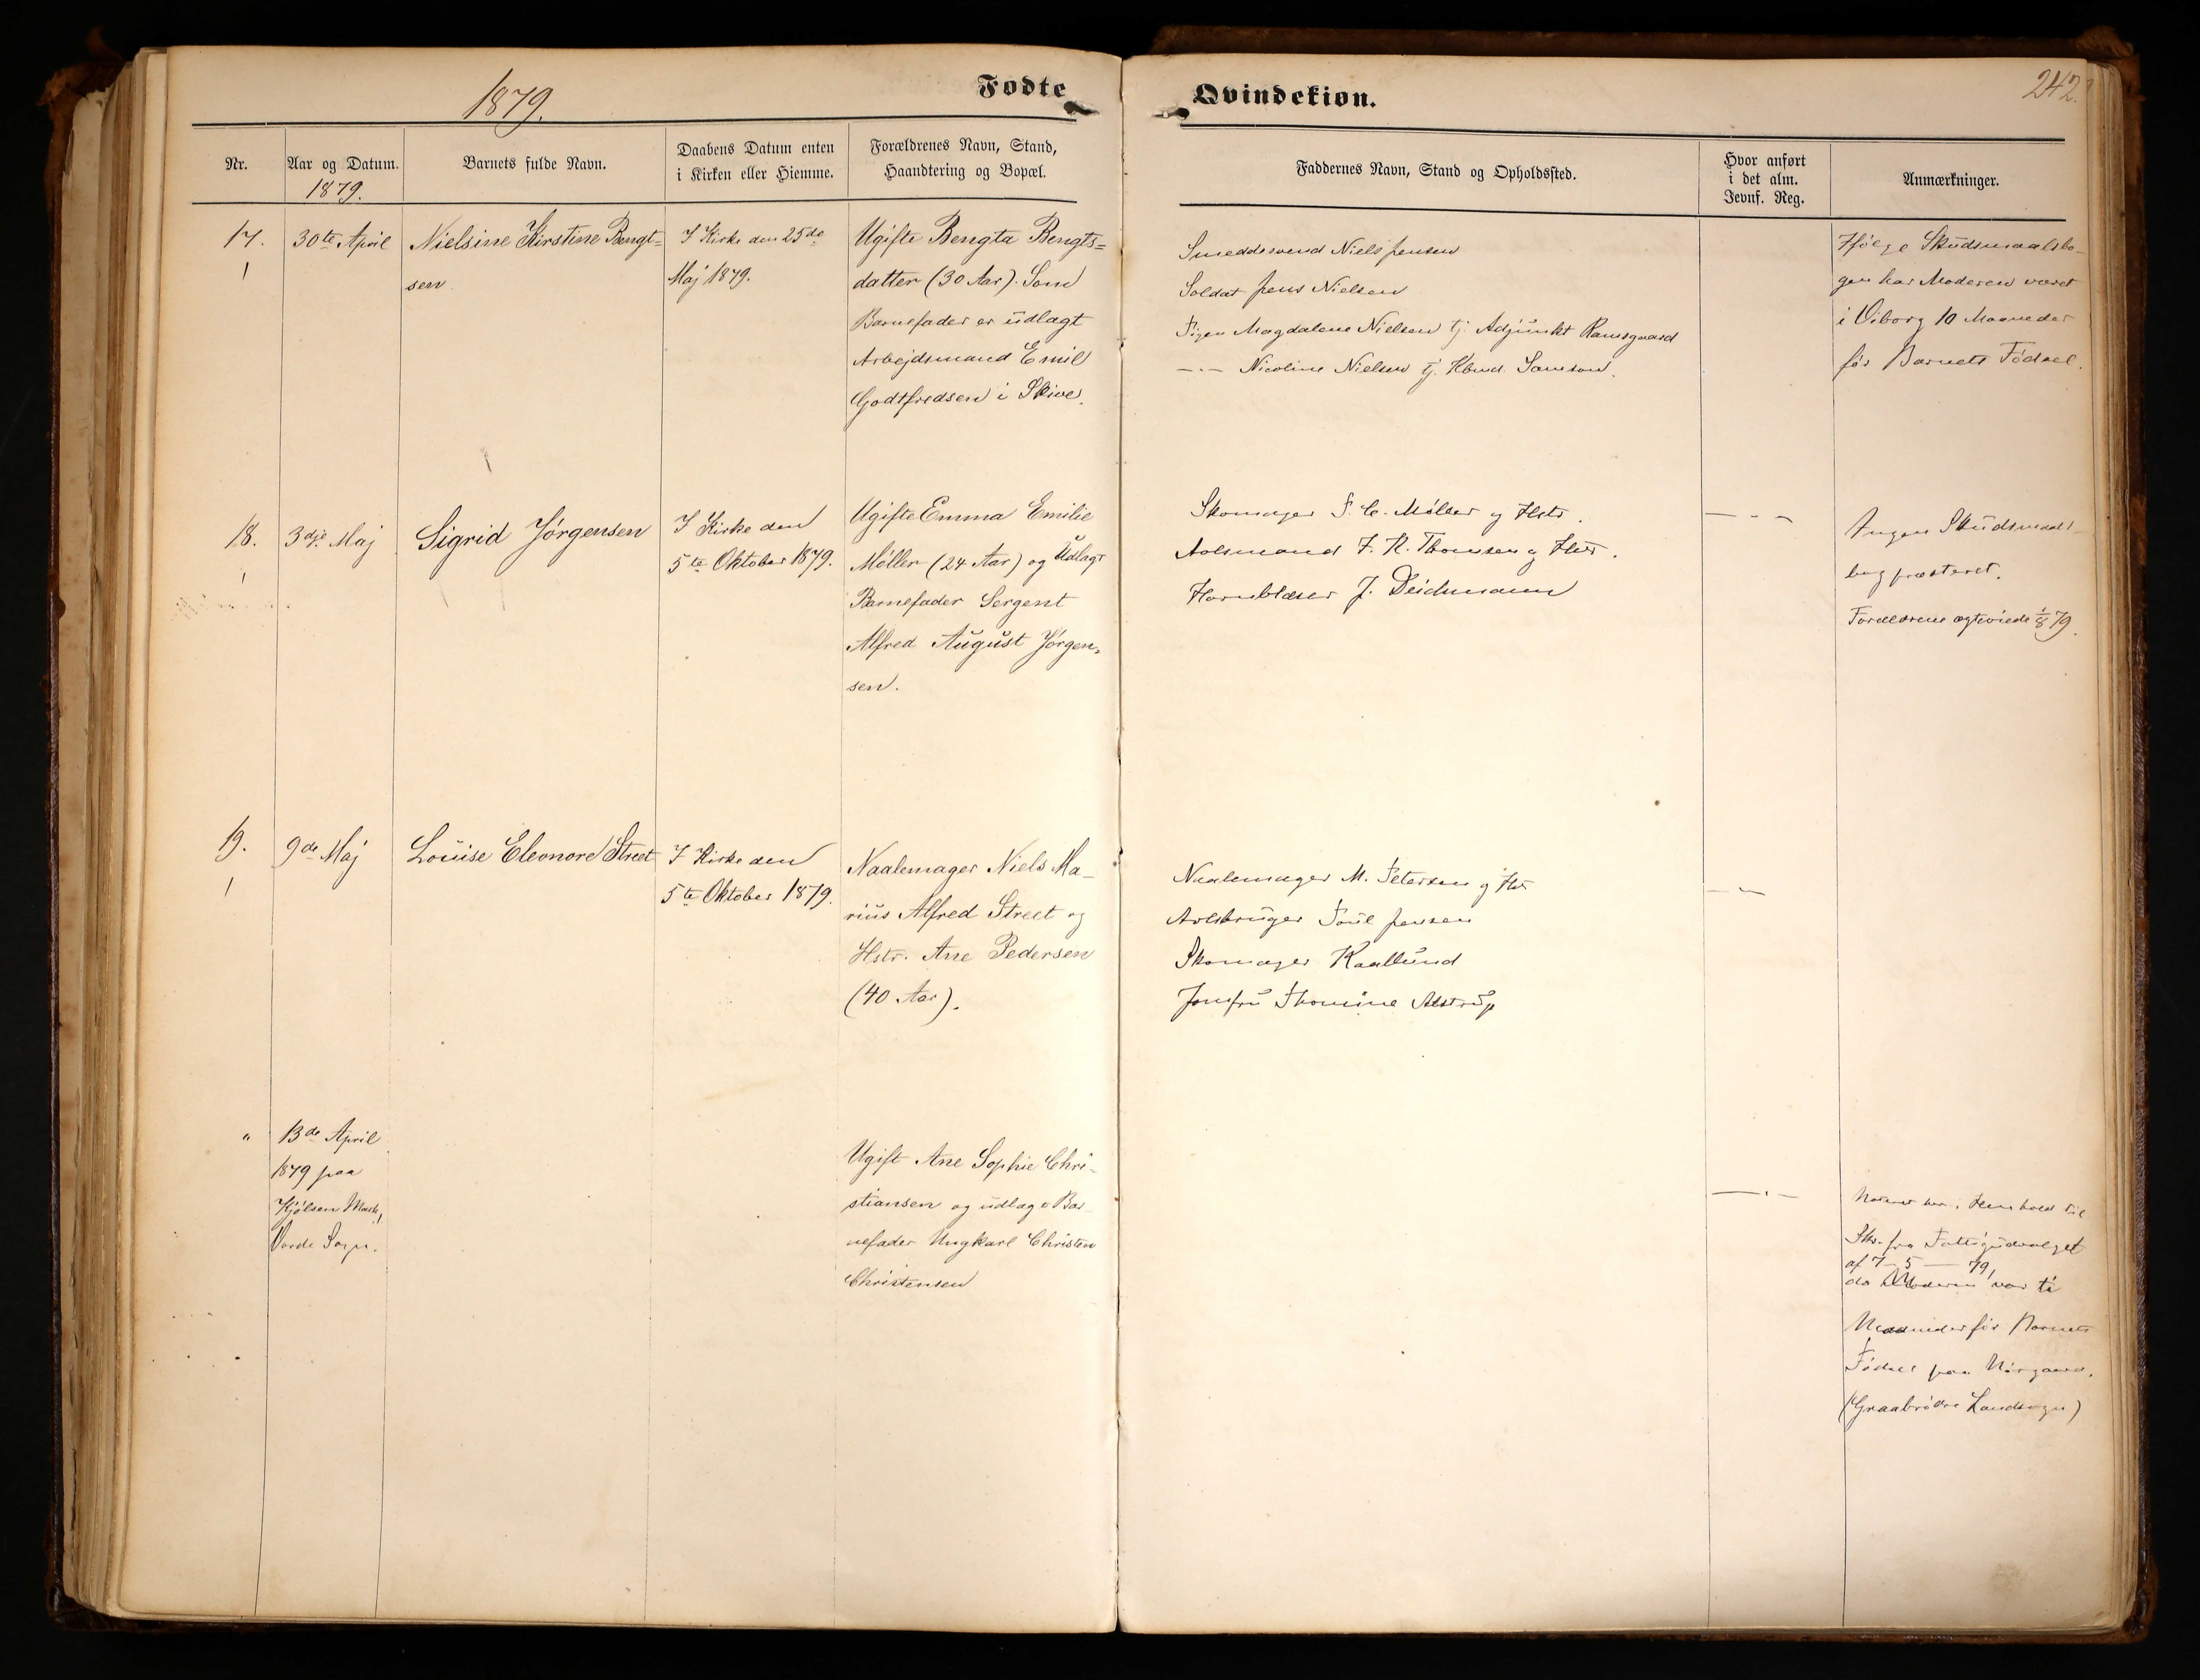 1879.
Fødte
Qvindekiøn.
242.
Nr.
Aar og Datum.
1879.
Barnets fulde Navn.
Daabens Datum enten
i Kirken eller Hiemme.
Forældrenes Navn, Stand,
Haandtering og Bopæl.
Faddernes Navn, Stand og Opholdssted.
Hvor anført
i det alm.
Jevnf. Reg.
Anmærkninger.
17.
1
30te April
Nielsine Kirstine Bengt=
sen
I Kirke den 25de
Maj 1879.
Ugifte Bengta Bengts=
datter (30 Aar). Som
Barnefader er udlagt
Arbejdsmand Emil
Godtfredsen i Skive.
Smeddesvend Niels Jensen
Soldat Jens Nielsen
Pigen Magdalene Nielsen tj. Adjunkt Ramsgaard
— Nicoline Nielsen tj. Kbmd. Samson.
Ifölge Skudsmaalsbo-
gen har Moderen været
i Viborg 10 Maaneder
för Barnets Födsel.
18.
1
3dje Maj
Sigrid Jörgensen
I Kirke den
5te Oktober 1879.
Ugifte Emma Emilie
Møller (24 Aar) og Udlagt
Barnefader Sergent
Alfred August Jörgen,
sen.
Skomager S. C. Møller og Hstr.
Avlsmand F. R. Thomsen og Hstr.
Hornblæser J. Deichmann
— - -
Ingen Skudsmaals-
bog præsteret.
Forældrene ægteviede 1/8 79.
19.
1
9de Maj
Louise Eleonore Street
I Kirke den
5te Oktober 1879.
Naalemager Niels Ma-
rius Alfred Street og
Hstr. Ane Pedersen
(40 Aar).
Naalemager M. Petersen og Hstr
Avlsbruger Poul Jensen
Skomager Kaallund
Jomfru Thomine Alstrup
— -
"
13de April
1879 paa
Kjölsen Mark,
Vorde Sogn.
Ugift Ane Sophie Chri-
stiansen og udlagt Bar-
nefader Ungkarl Christen
Christensen
— . -
her i Henhold til
Skr. fra Fattigudvalget
af 7 - 5 — 79,
da Moderen var ti
Maaneder för Barnets
Födsel paa Nörgaard.
(Graabrödre Landsogn)